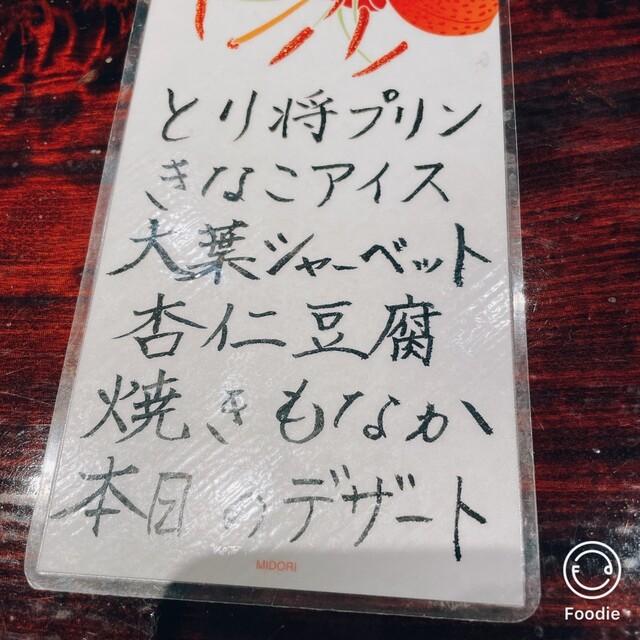 とり将プリン
きなこアイス
大葉シャーベット
杏仁豆腐
焼きもなか
本日のデザート
MIDORI
Foodie